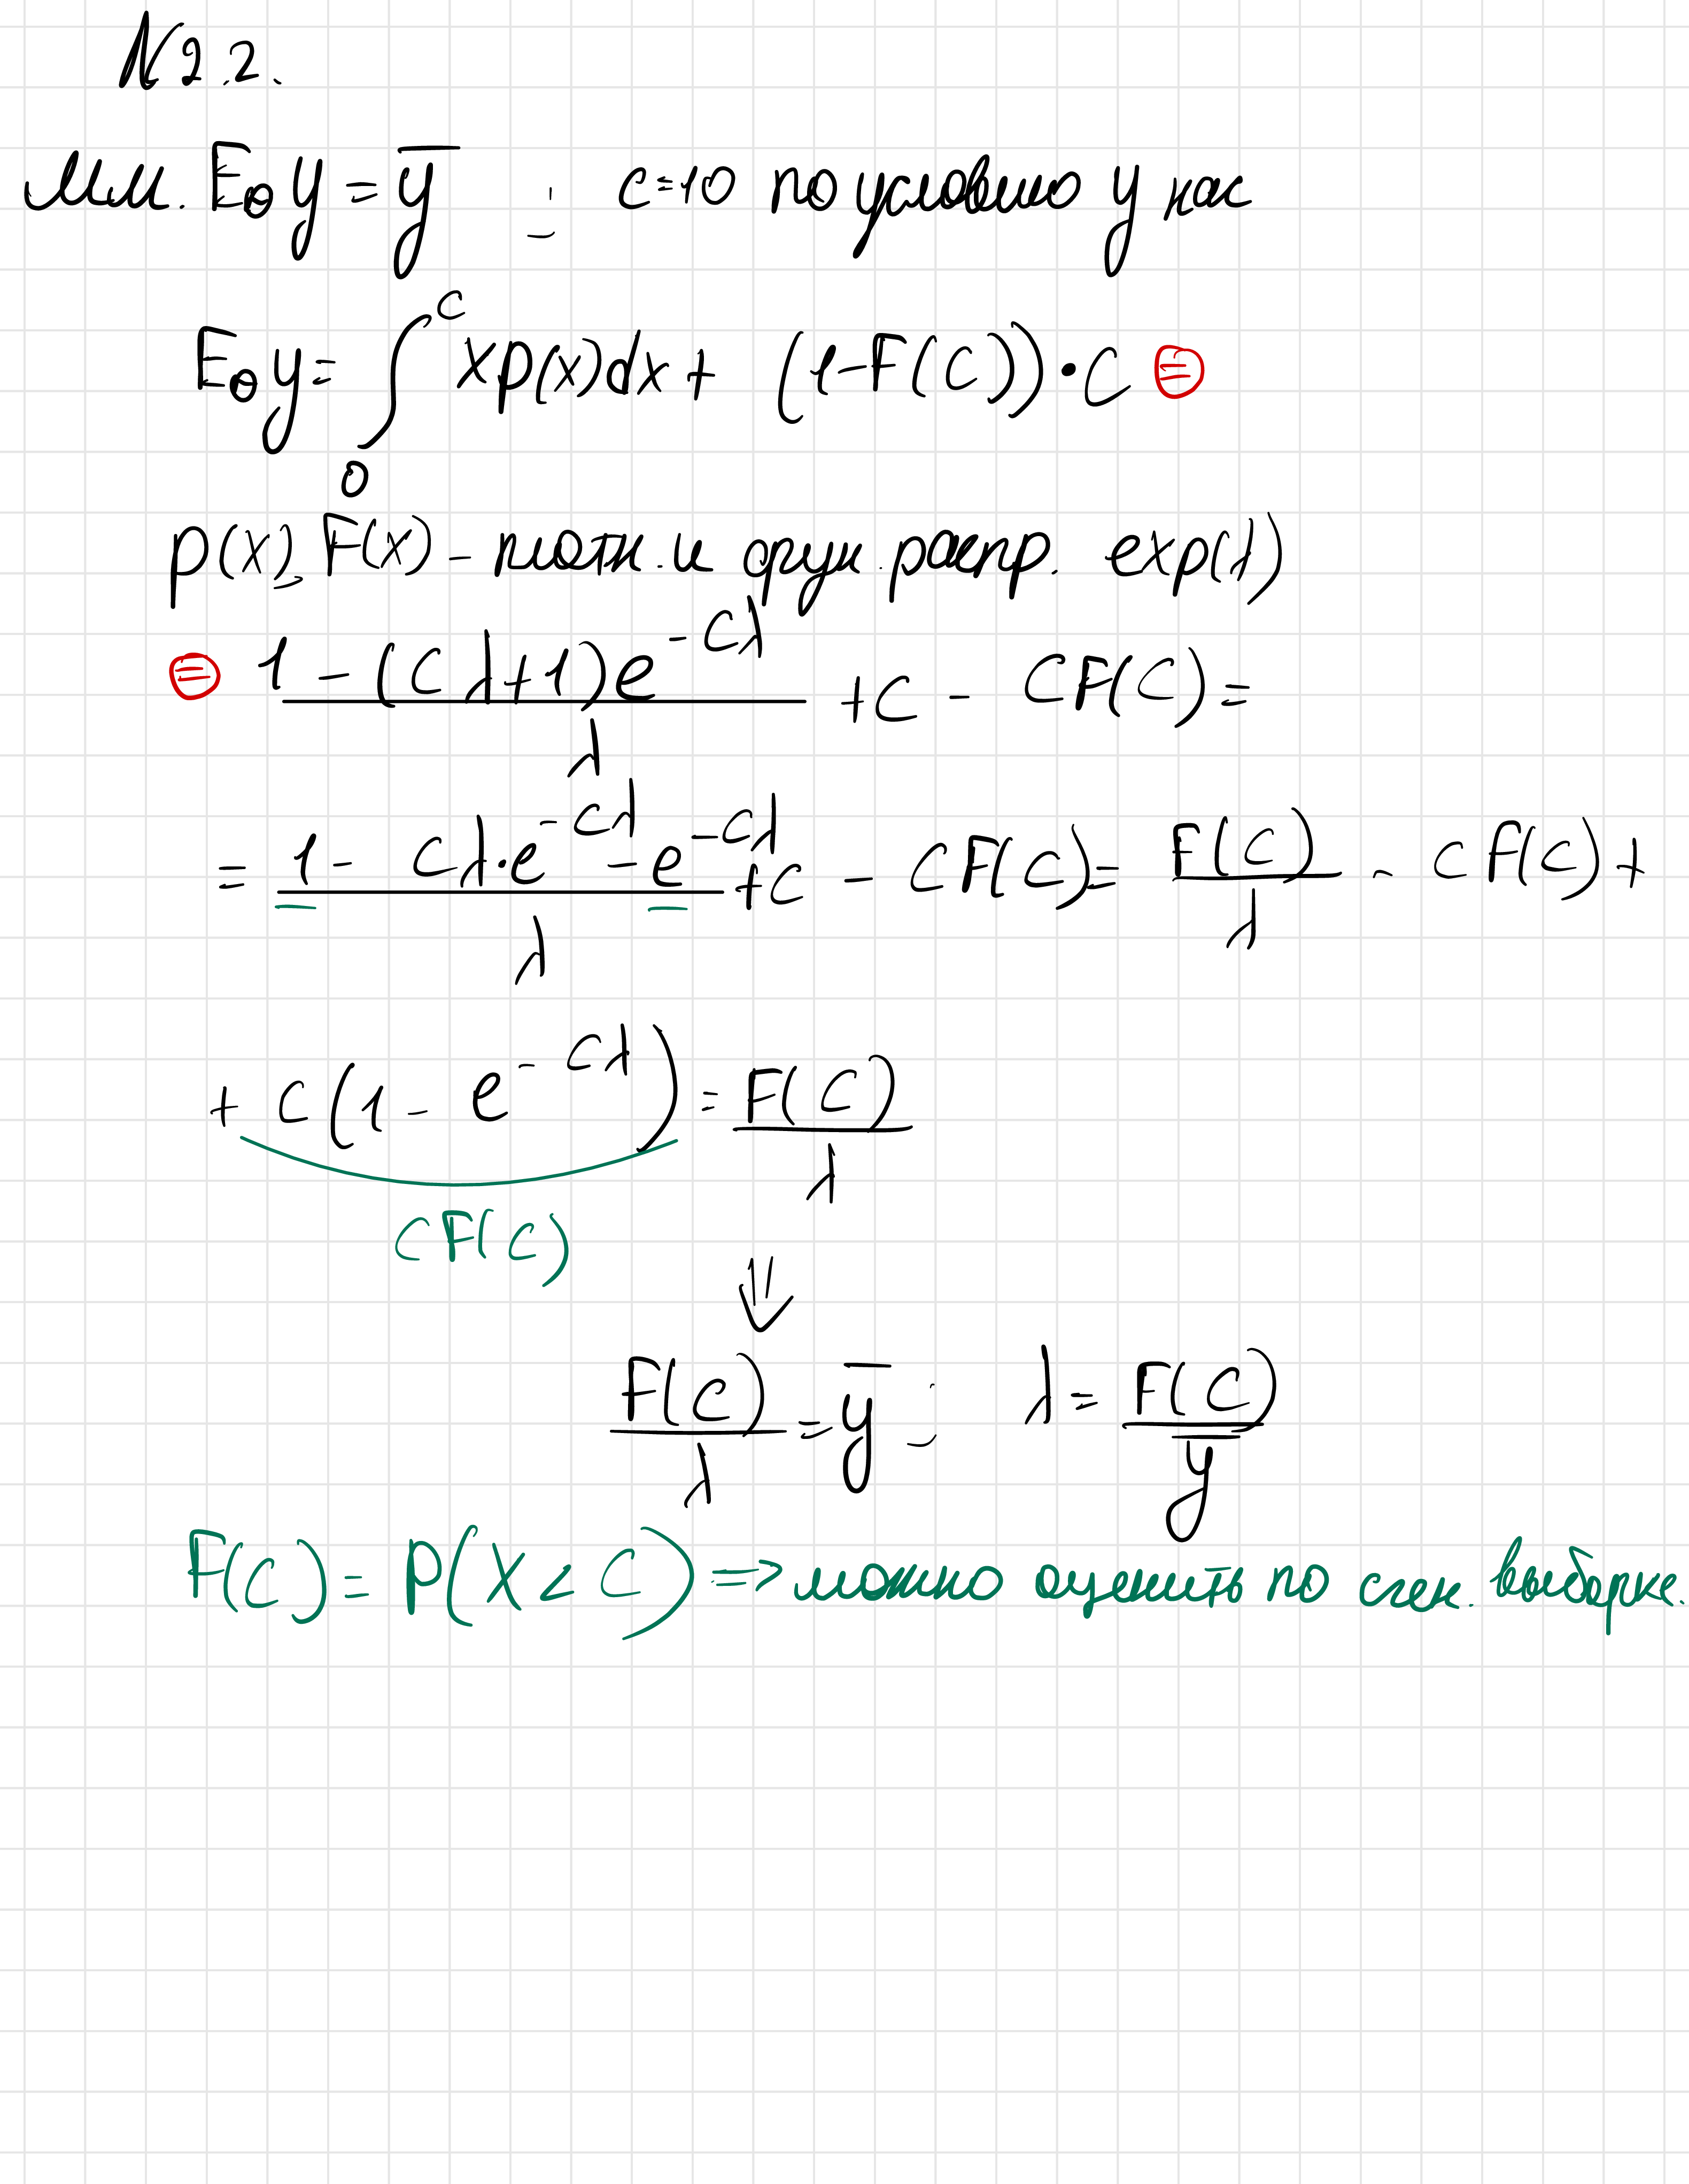 N 2.2.
м.м. E_θ y = ȳ ; c=10 по условию у нас
E_θ y = ∫_0^c x p(x)dx + (1-F(c))·c ⊜
p(x), F(x) - плотн. и функ. распр. exp(λ)
⊜ (1 - (cλ+1)e^{-cλ})/λ + c - cF(c) =
= (1 - cλ·e^{-cλ} - e^{-cλ})/λ + c - cF(c) = F(c)/λ - cF(c) +
+ c(1 - e^{-cλ}) = F(c)/λ
cF(c)
⇓
F(c)/λ = ȳ ; λ = F(c)/ȳ
F(c) = P(X < c) => можно оценить по выборке.